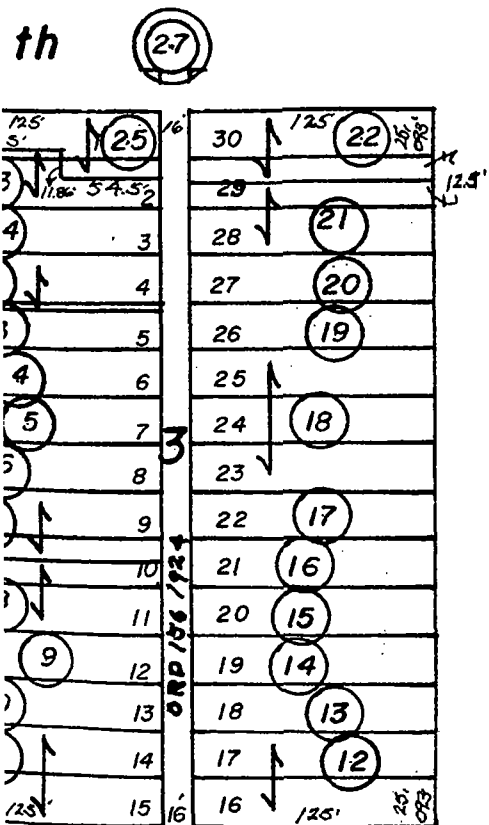 th 27
125' 25 16' 30 125' 22 25.093'
5' 
11.86' 54.5' 2 29 12.5'
4 3 28 21
4 27 20
5 26 19
4 6 25
5 7 24 18
3
8 23
9 22 17
10 21 16
11 20 15
9 12 19 14
13 18 13
14 17 12
125' 15 16' 16 125' 25.093
ORD 156 1924